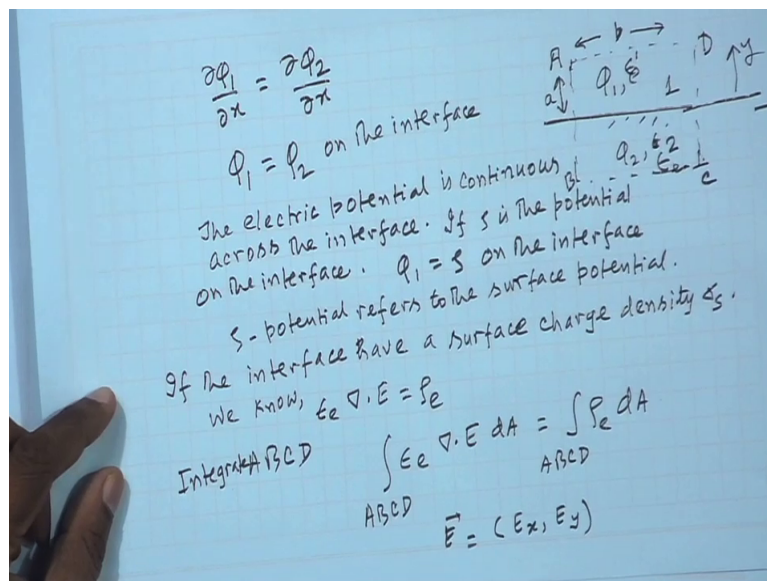 ∂φ₁/∂x = ∂φ₂/∂x
φ₁ = φ₂ on the interface
The electric potential is continuous
across the interface. If ζ is the potential
on the interface. φ₁ = ζ on the interface
ζ-potential refers to the surface potential.
If the interface have a surface charge density σₛ.
We know, εₑ ∇.E = ρₑ
Integrate ABCD ∫ εₑ ∇.E dA = ∫ ρₑ dA
ABCD ABCD
E⃗ = (Eₓ, Eᵧ)
← b →
A D y
a φ₁, 1
φ₂, ε2
B C